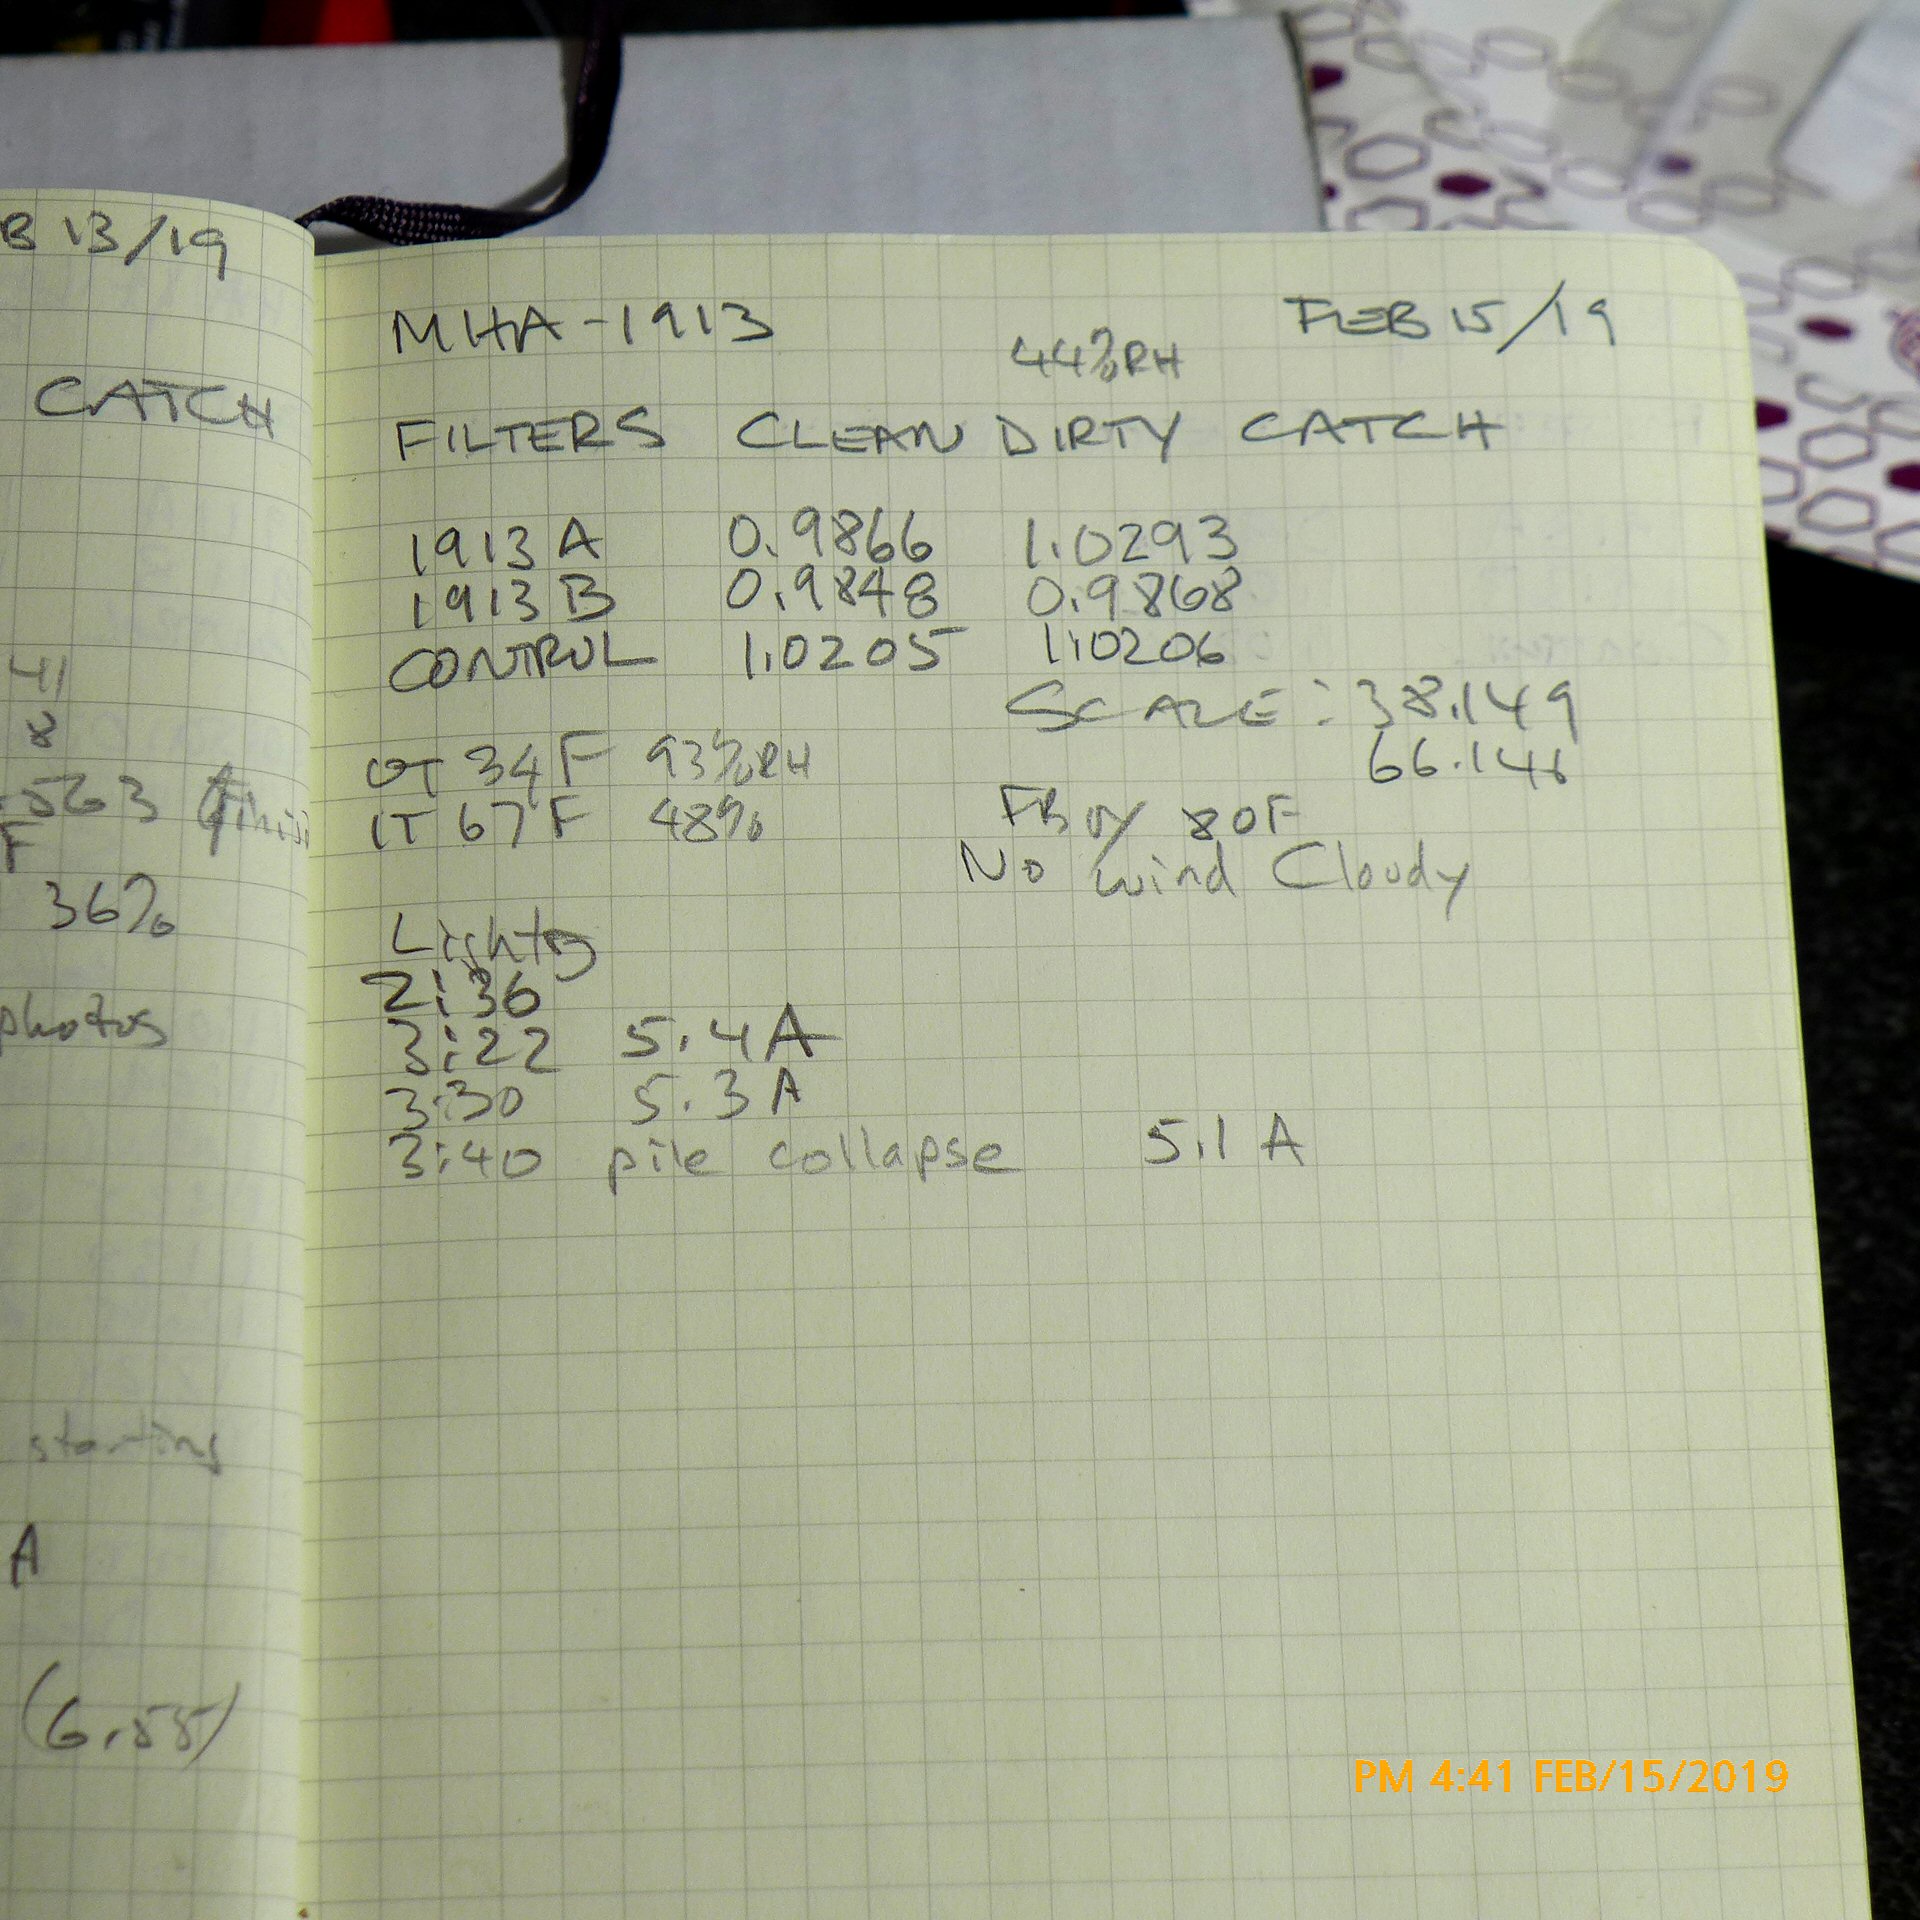 B 13/19
CATCH
41
8
.563
F
36%
photos
starting
A
(6.55)
MHA-1913
FEB 15/19
44%RH
FILTERS CLEAN DIRTY CATCH
1913 A 0.9866 1.0293
1913 B 0.9848 0.9868
CONTROL 1.0205 1.0206
SCALE: 38.149
66.146
OT 34F 93%RH
IT 67F 48%
80F
No wind Cloudy
2:36
3:22 5.4A
3:30 5.3 A
3:40 pile collapse 5.1 A
PM 4:41 FEB/15/2019